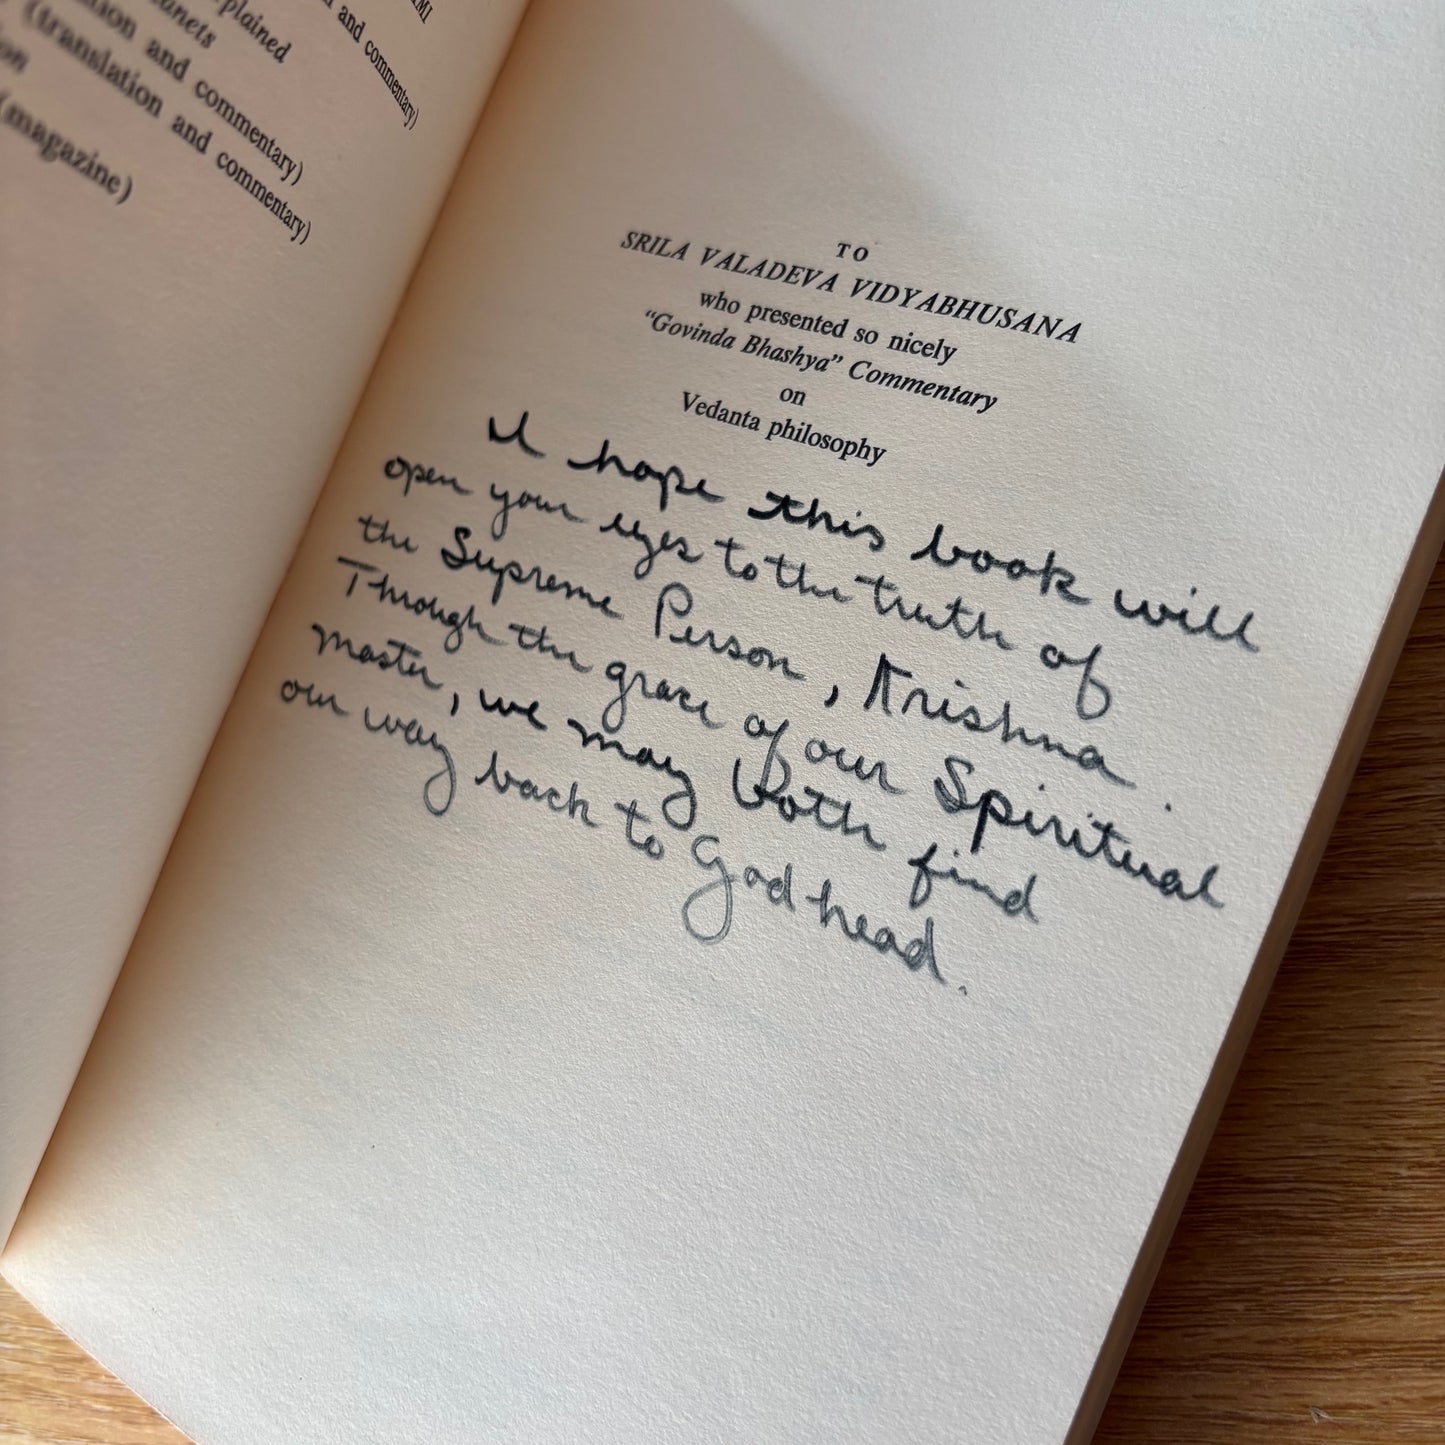 MI
and commentary)
plained
anets
tion and commentary)
(translation and commentary)
on
(magazine)
TO
SRILA VALADEVA VIDYABHUSANA
who presented so nicely
"Govinda Bhashya" Commentary
on
Vedanta philosophy
I hope this book will
open your eyes to the truth of
the Supreme Person, Krishna.
Through the grace of our Spiritual
master, we may both find
our way back to Godhead.